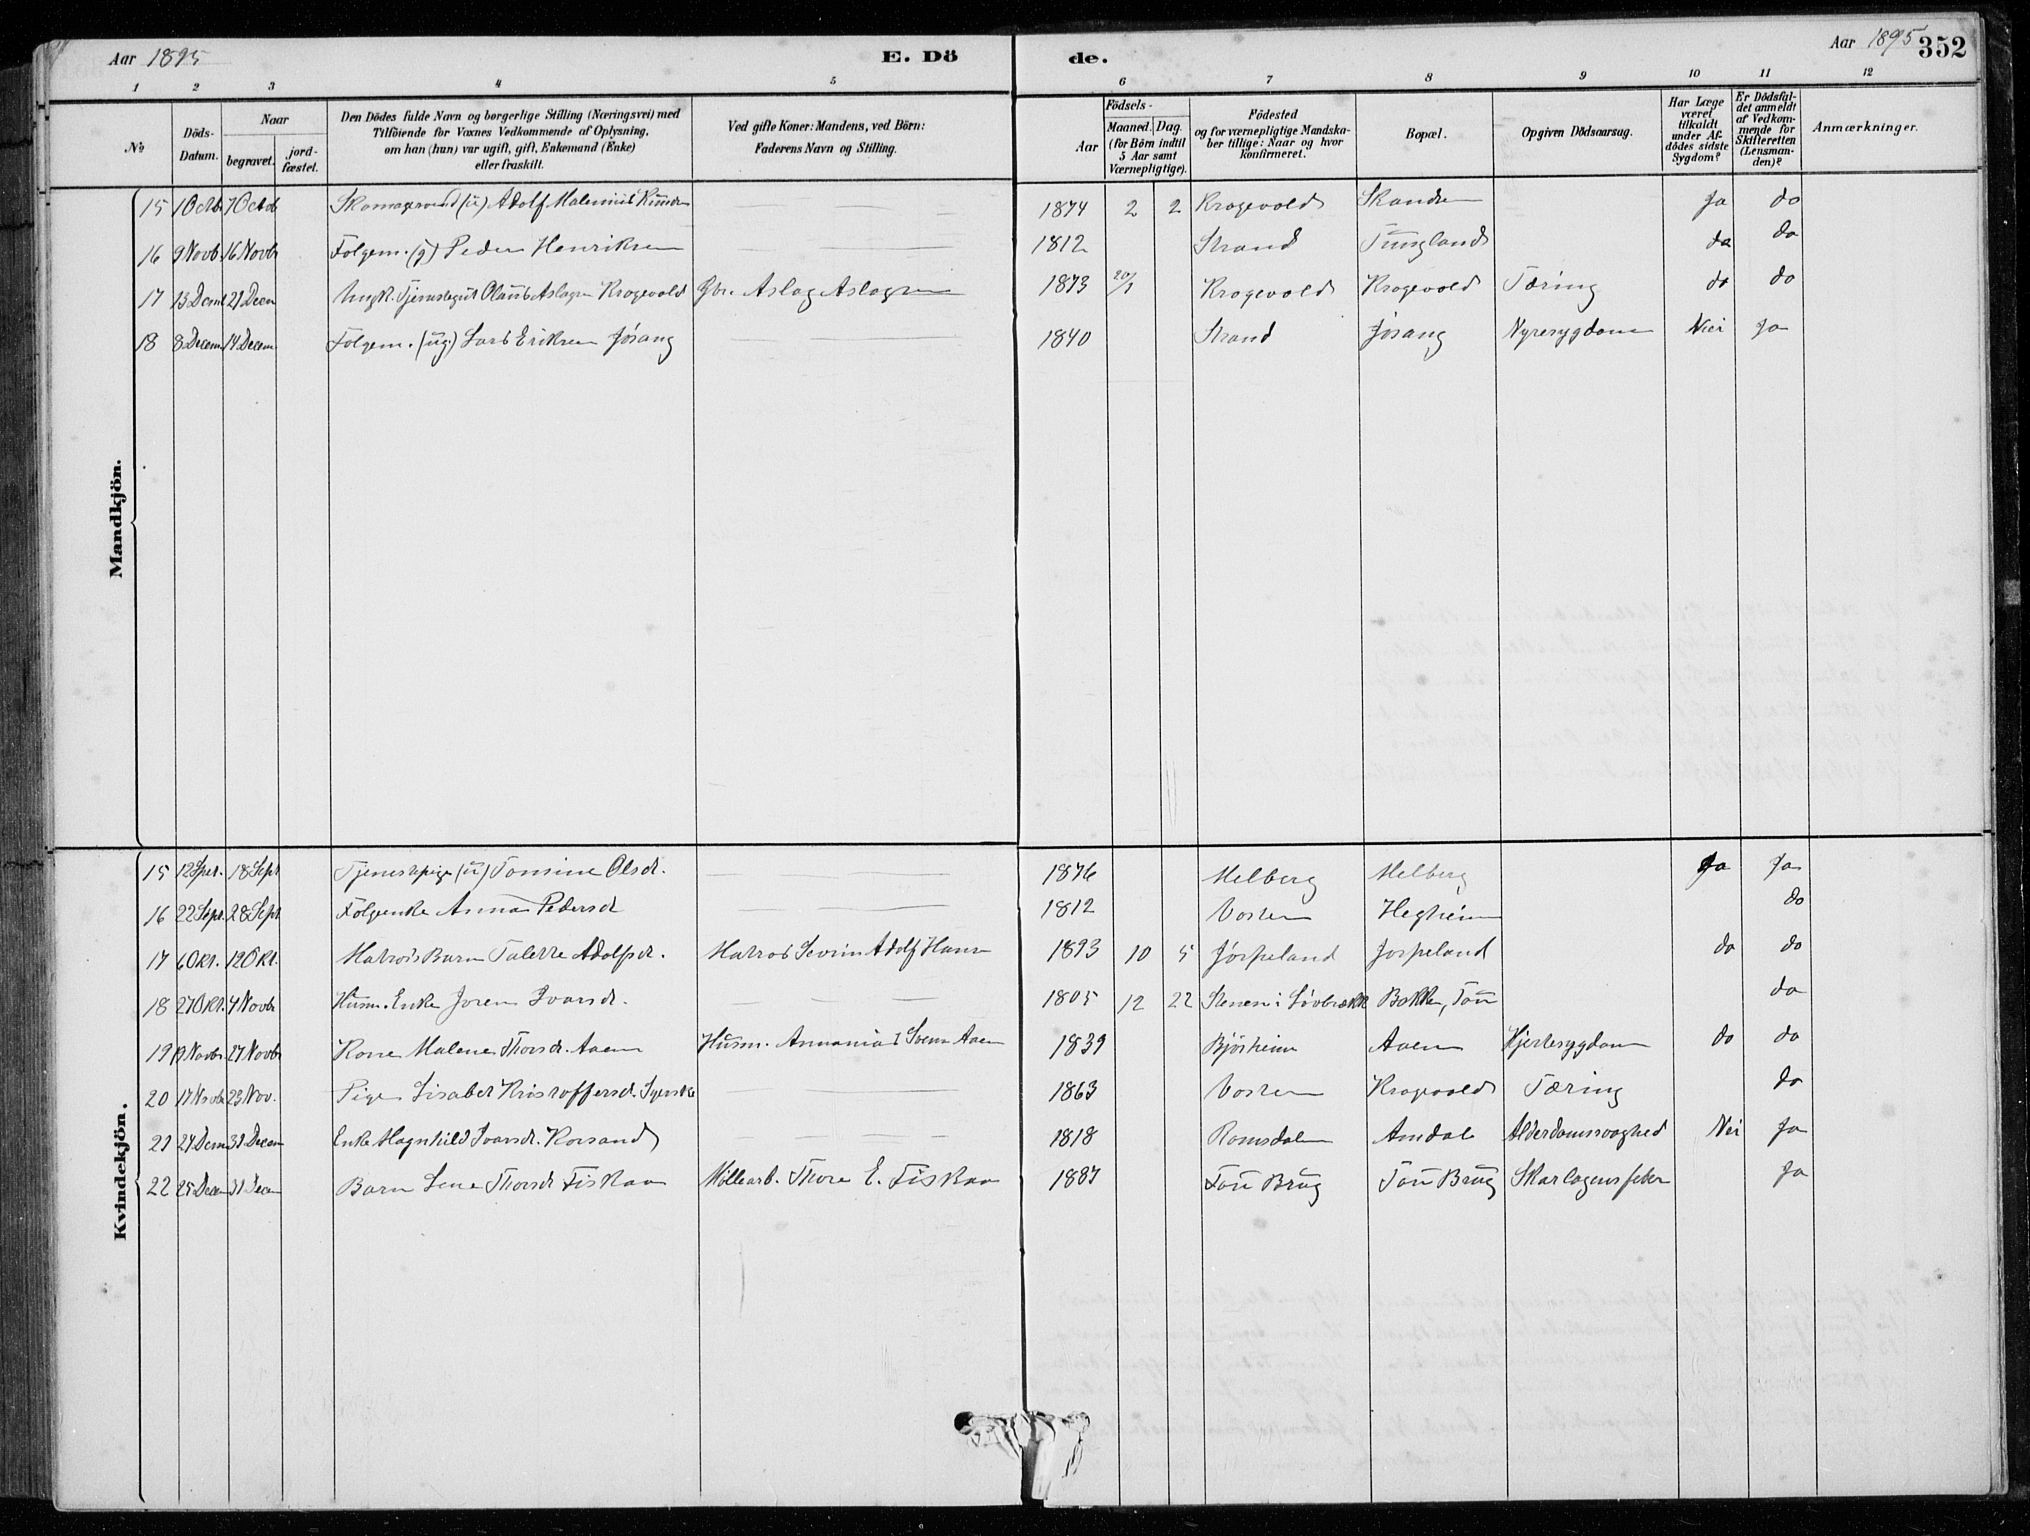 Aar 1895 E. Dö de. Aar 1895 352
1 2 3 4 5 6 7 8 9 10 11 12
No
Döds-Datum.
Naar
begravet.
jord-fæstet.
Den Dödes fulde Navn og borgerlige Stilling (Næringsvei) med
Tilföiende for Voxnes Vedkommende af Oplysning,
om han (hun) var ugift, gift, Enkemand (Enke)
eller fraskilt.
Ved gifte Koner: Mandens, ved Börn:
Faderens Navn og Stilling.
Födsels-
Aar
Maaned. Dag.
(for Börn indtil
5 Aar samt
Værnepligtige).
Födested
og for værnepligtige Mandska-
ber tillige: Naar og hvor
konfirmeret.
Bopæl.
Opgiven Dödsaarsag.
Har Læge
været
tilkaldt
under Af-
dödes sidste
Sygdom?
Er Dödsfal-
det anmeldt
af Vedkom-
mende for
Skifteretten
(Lensman-
den)?
Anmærkninger.
Mandkjön.
15 1 Octb 7 Octob (u) Adolf 1874 2 2 Krogevold Ja do
16 9 Novb. 16 Novb Folgem. (g) Peder Henriksen 1812 Strand Tungland do do
17 13 Dcm 21 Decm Ungk. Tjenestegut Olaus Aslagsen Krogevold Gbr. Aslag Aslagsen 1873 20/1 Krogevold Krogevold Tæring do do
18 8 Decem 14 Decem Folgem. (ug.) Lars Eriksen Jösang 1840 Strand Jösang Nyresygdom Nei Ja
Kvindekjön.
15 12 Spet. 18 Sept Tjenestepige (u) Tomine Olsdt. 1876 Melberg Melberg Ja Ja
16 22 Sept. 28 Sept Folgenke Anna Pedersd 1812 Vosten Hegheim do
17 6 Okt. 12 Okt. Matrosbarn Talette Adolfsdt. Matros Severin Adolf Hansen 1893 10 5 Jörpeland Jörpeland do do
18 27 Okt. 4 Novb Husm. Enke Joren Ivarsdt. 1805 12 22 Stenen i Lövbrækk Bakken, Tou do
19 19 Novb 27 Novb Kone Malene Thorsdt. Aaen Husm. Annanias Svens Aaen 1839 Björheim Aaen Hjertesygdom do do
20 17 Novb 23 Nov. Pige Lisabet Kristoffersdt. 1863 Vosten Krogevold Tæring do
21 24 Dcm 31 Decem Enke Magnhild Ivarsdt. Korsand 1818 Romsdalen Amdal Alderdomssvaghed Nei Ja
22 25 Decem 31 Decem Barn Lene Thorsdt Fiskaa Möllearb. Thore E. Fiskaa 1887 Tou Brug Tou Brug Skarlagensfeber Ja